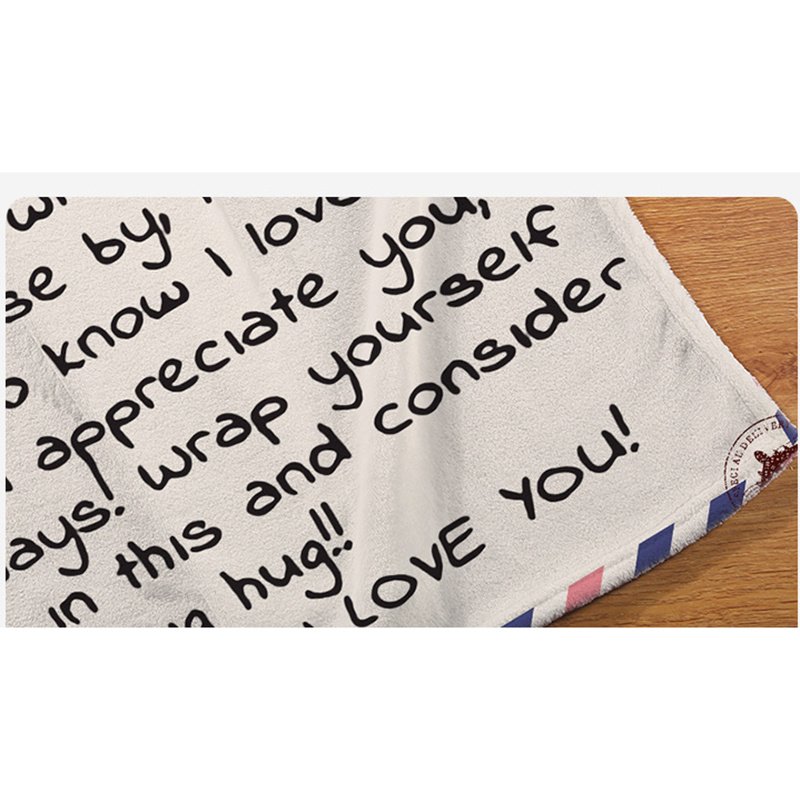 by,
know I love
appreciate you,
wrap yourself
in this and consider
hug!!
I LOVE YOU!
SPECIAL DELIVER